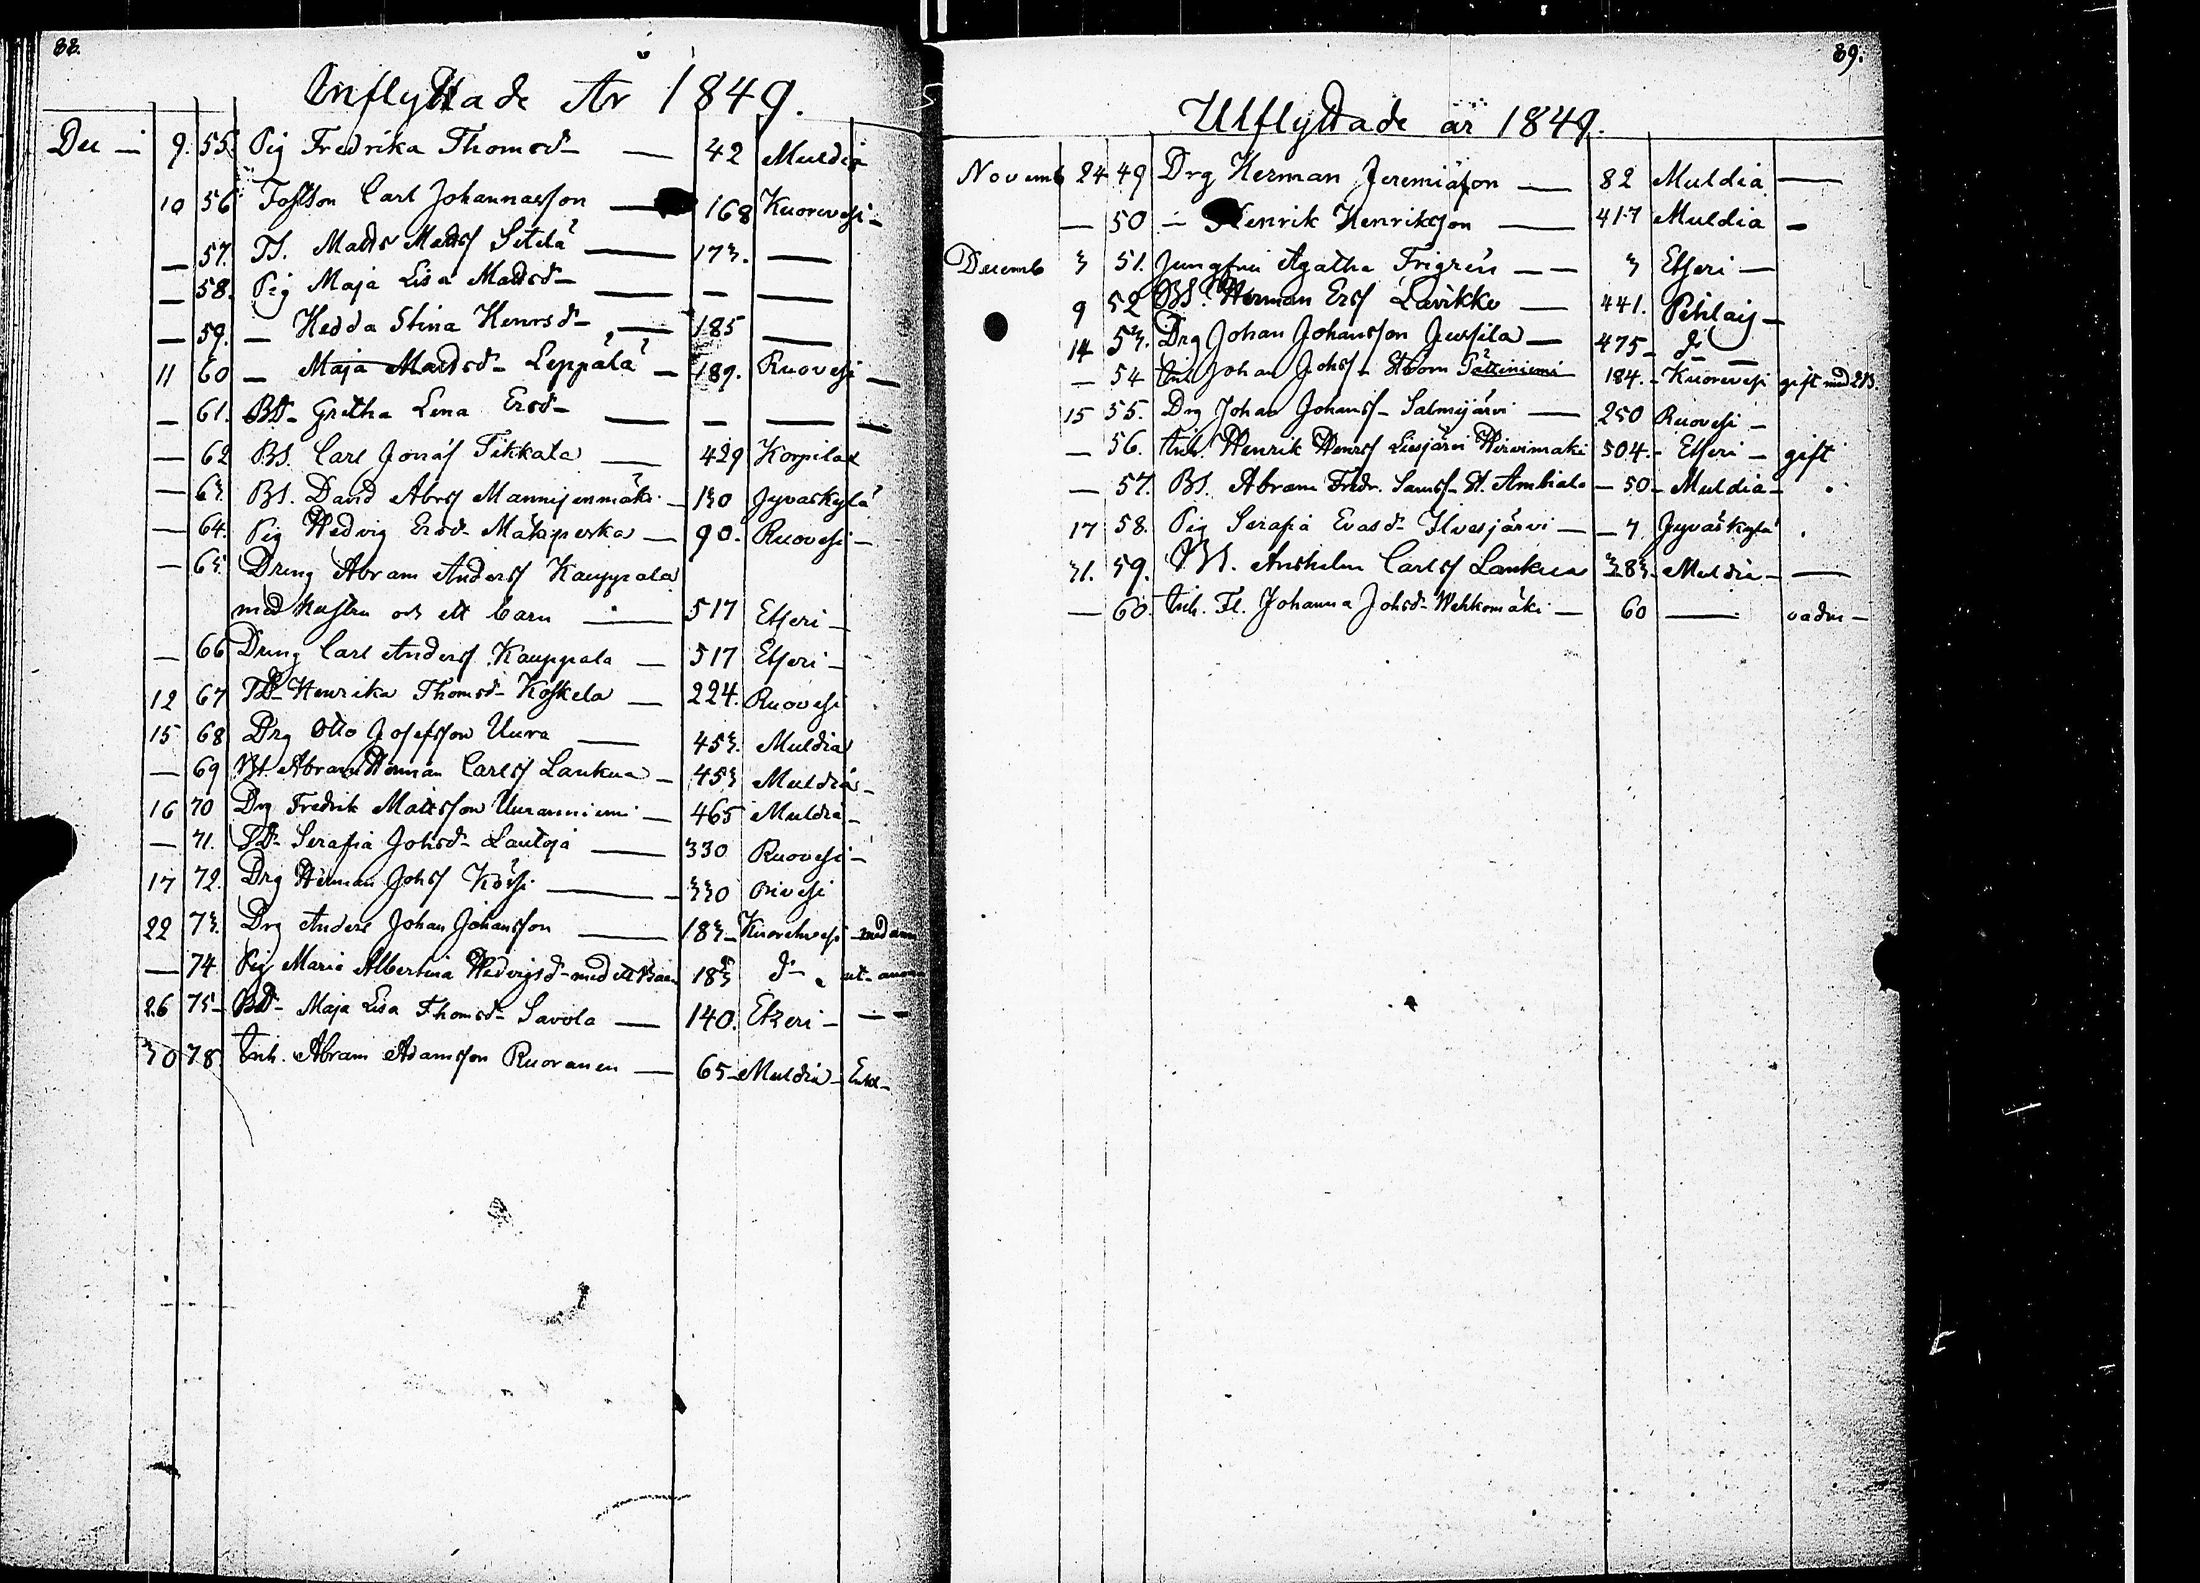 88.
Inflyttade År 1849.
Dec — 9. 55. Pig Fredrika Thomsd- — 42 Muldia
10 56 Torpson Carl Johansson — 168 Kuorevesi -
— 57. TS. Matts Matts Sitelä — 173. —
— 58. Pig Maja Lisa Mattsd- — — —
— 59. — Hedda Stina Henrsd- — 185 —
11 60 — Maja Mattsd- Leppälä — 189. Ruovesi —
— 61. BD- Gretha Lena Ersd- — — — —
— 62 BS. Carl Jonäs Tikkala — 429 Korpilax
— 63. BS. David Abrs Mannisenmäki - 130 Jyväskylä
— 64. Pig Hedvig Ersd- Mäkiperka — 90. Ruovesi -
— 65. Dreng Abram Anders Kauppala
med hustru och ett barn — 517 Etseri -
— 66 Dreng Carl Anders Kauppala — 517 Etseri -
12 67 TD- Henrika Thomsd- Koskela — 224. Ruovesi
15 68 Drg Otto Josefsson Uura — 453. Muldia
— 69 Bs. Abram Herman Carls Laukua - 453 Muldia -
16 70 Drg Fredrik Mattsson Uuranniemi — 465 Muldia -
— 71. TD- Serafia Johsd- Lautoja — 330 Ruovesi -
17 72. Drg Herman Johs — 330 Orivesi
22 73. Drg Anders Johan Johansson — 183 - Kuorehvesi -
— 74 Pig Maria Albertina Hedvigsd- med ett Barn 183 d-
26 75- BD- Maja Lisa Thomsd- Savola — 140. Etzeri - — -
30 78. Inh. Abram Adamsson Ruoranen — 65- Muldia -
89.
Utflyttade år 1849.
Novemb 24 49 Drg Herman Jeremiäson — 82 Muldia —
— 50 — Henrik Henriksson — 417 Muldia -
Decemb 3 51. Jungfru Agatha Frigrén — — 3 Etseri —
9 52 BS. Herman Ers Lavikko — 441. Pehlaj -
14 53. Drg Johan Johansson Jussila — 475- d- —
— 54 Inh Johan Johs- Storm Pätziniemi 184. - Kuorevesi gift med
15 55. Drg Johan Johans- Salmijärvi — 250 Ruovesi -
— 56. Inh. Henrik Henrs Liesjärvi Hirvimäki 504. - Etseri - gift
— 57. BS. Abram Fredr. Sams- St. Ambiala — 50 - Muldia -
17 58. Pig Serafia Evasd- Ilvesjärvi — - 7 Jyväskylä
31. 59. BS. Anshelm Carls Laukua 383- Muldia - —
— 60. Inh. Fl. Johanna Johsd- Wehkomäki — 60 —